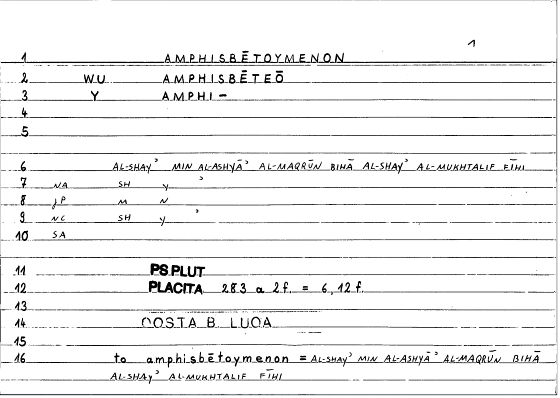 1
1 AMPHISBĒTOYMENON
2 WU AMPHISBĒTEŌ
3 Y AMPHI-
4
5
6 AL-SHAYʾ MIN AL-ASHYĀʾ AL-MAQRŪN BIHĀ AL-SHAYʾ AL-MUKHTALIF FĪHI
7 NA SH Y ʾ
8 JP M N
9 NC SH Y ʾ
10 SA
11 PS PLUT
12 PLACITA 283 a 2f. = 6,12f.
13
14 COSTA B. LUCA
15
16 to amphisbētoymenon = AL-SHAYʾ MIN AL-ASHYĀʾ AL-MAQRŪN BIHĀ
AL-SHAYʾ AL-MUKHTALIF FĪHI